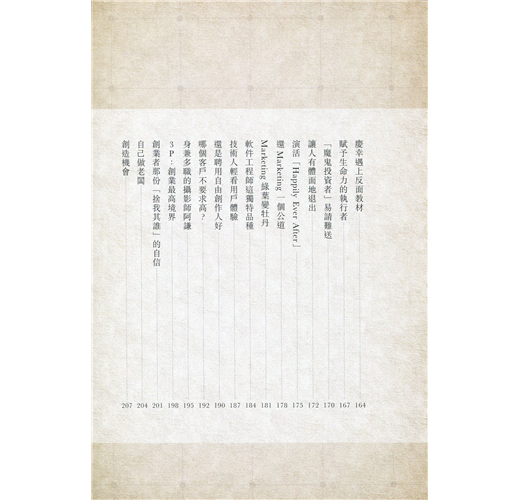 慶幸遇上反面教材 164
賦予生命力的執行者 167
「魔鬼投資者」易請難送 170
讓人有體面地退出 172
演活「Happily Ever After」 175
還 Marketing 一個公道 178
Marketing 綠葉變牡丹 181
軟件工程師這獨特品種 184
技術人輕看用戶體驗 187
還是聘用自由創作人好 190
哪個客戶不要求高？ 192
身兼多職的攝影師阿謙 195
3P：創業最高境界 198
創業者那份「捨我其誰」的自信 201
自己做老闆 204
創造機會 207